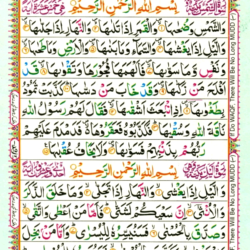 بِسْمِ اللهِ الرَّحْمٰنِ الرَّحِيْمِ
وَالشَّمْسِ وَضُحٰىهَا وَالْقَمَرِ اِذَا تَلٰىهَا وَالنَّهَارِ اِذَا جَلّٰىهَا
وَالَّيْلِ اِذَا يَغْشٰىهَا وَالسَّمَآءِ وَمَا بَنٰىهَا وَالْاَرْضِ وَمَا طَحٰىهَا
وَنَفْسٍ وَّمَا سَوّٰىهَا فَاَلْهَمَهَا فُجُوْرَهَا وَتَقْوٰىهَا قَدْ
اَفْلَحَ مَنْ زَكّٰىهَا وَقَدْ خَابَ مَنْ دَسّٰىهَا كَذَّبَتْ ثَمُوْدُ
بِطَغْوٰىهَا اِذِ انْۢبَعَثَ اَشْقٰىهَا فَقَالَ لَهُمْ رَسُوْلُ اللهِ
نَاقَةَ اللهِ وَسُقْيٰهَا فَكَذَّبُوْهُ فَعَقَرُوْهَا فَدَمْدَمَ عَلَيْهِمْ
رَبُّهُمْ بِذَنْۢبِهِمْ فَسَوّٰىهَا وَلَا يَخَافُ عُقْبٰهَا
بِسْمِ اللهِ الرَّحْمٰنِ الرَّحِيْمِ
وَالَّيْلِ اِذَا يَغْشٰى وَالنَّهَارِ اِذَا تَجَلّٰى وَمَا خَلَقَ الذَّكَرَ
وَالْاُنْثٰى اِنَّ سَعْيَكُمْ لَشَتّٰى فَاَمَّا مَنْ اَعْطٰى وَاتَّقٰى
وَصَدَّقَ بِالْحُسْنٰى فَسَنُيَسِّرُهٗ لِلْيُسْرٰى وَاَمَّا مَنْۢ
If Do WAQF, There Will Be No Long MUDD (~)